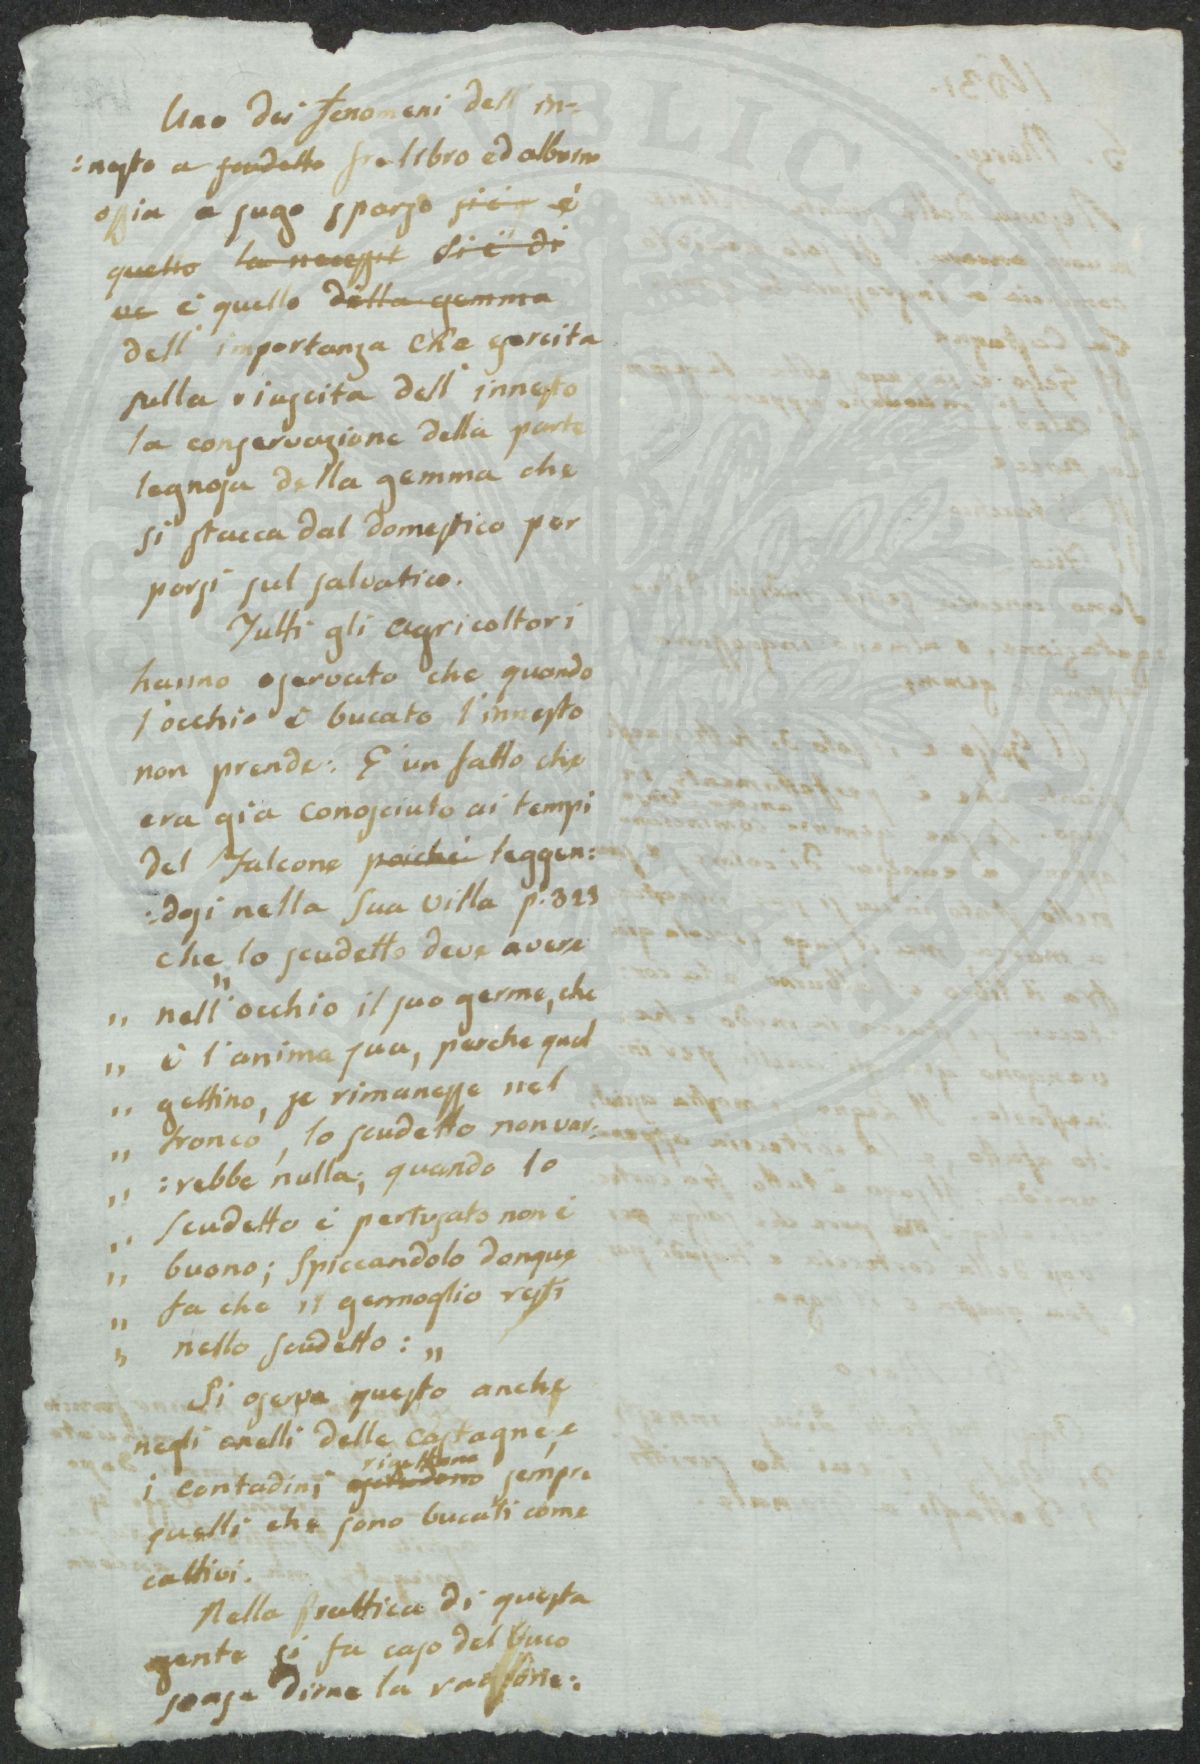 Uno dei fenomeni dell' in-
:nesto a scudetto fra libro ed alburno
ossia a sugo sparso si è è
questo la necessit si è di
ve è quello della gemma
dell' importanza che esercita
sulla riuscita dell' innesto
la conservazione della parte
legnosa della gemma che
si stacca dal domestico per
porsi sul salvatico.
Tutti gli agricoltori
hanno oservato che quando
l'occhio è bucato l'innesto
non prende: È un fatto che
era gia conosciuto ai tempi
del Falcone poichei leggen:
:dosi nella sua villa p. 323
che lo scudetto deve avere
„ nell' occhio il suo germe, che
„ è l'anima sua, perche quel
„ gettino, se rimanesse nel
„ tronco, lo scudetto non var:
„ :rebbe nulla; quando lo
„ scudetto è pertusato non è
„ buono; Spiccandolo donque
„ fa che il germoglio resti
„ nello scudetto: „
Si oserva questo anche
negli anelli delle castagne, e
rigettano
i contadini sempre
quelli che sono bucati come
cattivi.
Nella prattica di questa
gente si fa caso del buco
senza dirne la raggione:.